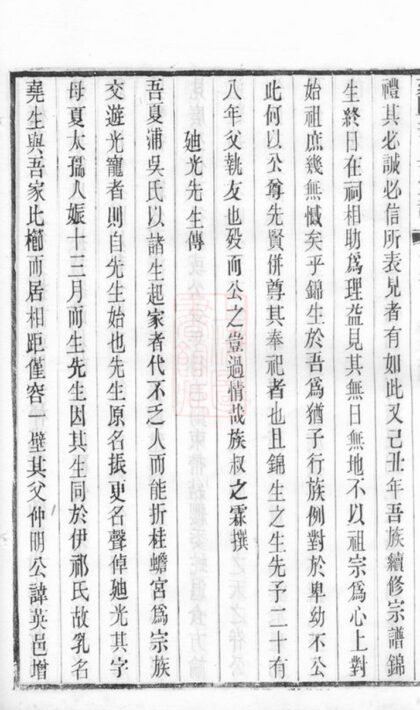 禮其必誠必信所表見者有如此又乙丑年吾族續修宗譜錦
生終日在祠相助爲理益見其無日無地不以祖宗爲心上對
始祖庶幾無憾矣乎錦生於吾爲猶子行族例對於卑幼不公
此何以公尊先賢併尊其奉祀者也且錦生之生先予二十有
八年父執友也歿而公之豈過情哉族叔之霖撰
廸光先生傳
吾夏浦吳氏以諸生起家者代不乏人而能折桂蟾宮爲宗族
交遊光寵者則自先生始也先生原名振更名聲倬廸光其字
母夏太孺人娠十三月而生先生因其生同於伊祁氏故乳名
堯生與吾家比櫛而居相距僅容一壁其父仲明公諱英邑增